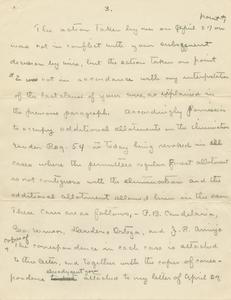 3.
point #1
The action taken by me on April 27 on
was not in conflict with your subsequent
decision by wire, but the action taken on point
#2 was not in accordance with my interpretation
of the last clause of your wire, as explained in
the previous paragraph. Accordingly permission
to occupy additional allotments on the elimination
under Reg. 54 is today being revoked in all
cases where the permittees regular Forest allotment
is not contiguous with the elimination and the
additional allotment allowed him on the same
These cases are as follows, - F.B. Candelaria,
Geo. Armijo, Leandro Ortega, and J.R. Armijo
copies of
The correspondence in each case is attached
to this letter, and together with the copies of corres-
already sent you
pondence attached to my letter of April 29,